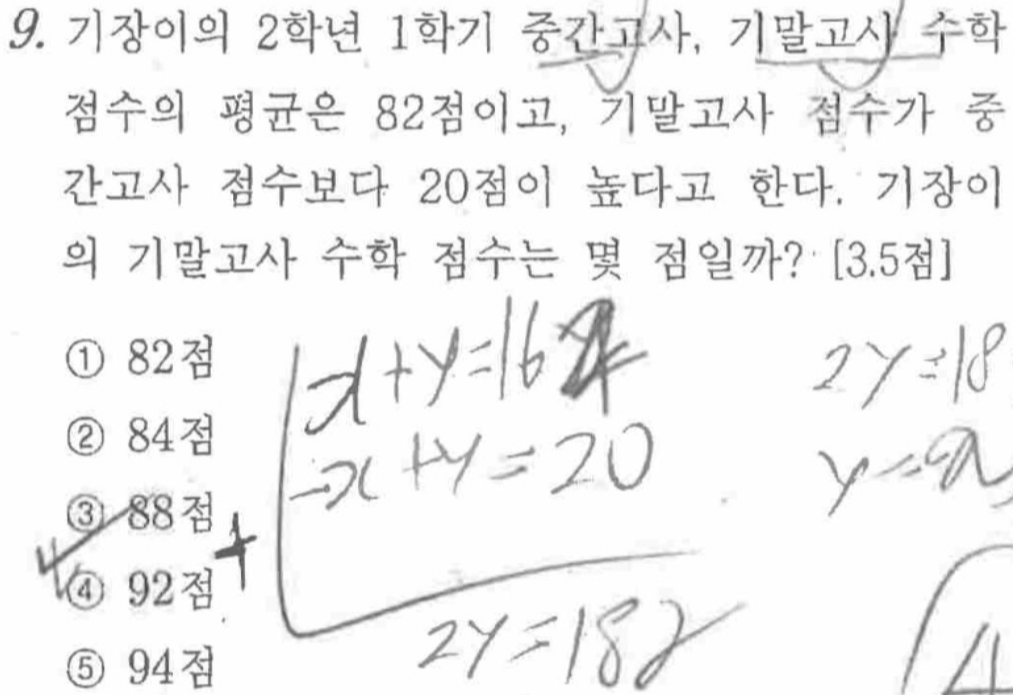 9. 기장이의 2학년 1학기 중간고사, 기말고사 수학
점수의 평균은 82점이고, 기말고사 점수가 중
간고사 점수보다 20점이 높다고 한다. 기장이
의 기말고사 수학 점수는 몇 점일까? [3.5점]
① 82점
② 84점
③ 88점
④ 92점
⑤ 94점
x+y=164
-x+y=20
+
2y=182
2y=18
y=
4